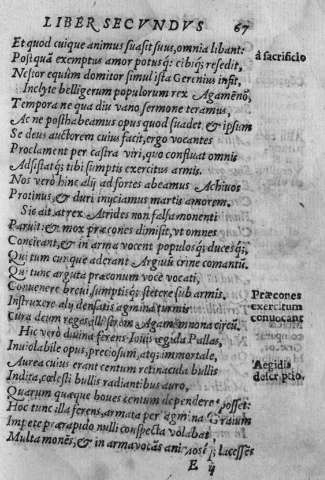 LIBER SECVNDVS 67
Et quod cuique animus suasit suus, omnia libant:
Postquã exemptus amor potusq; cibiq; resedit, à sacrificio
Nestor equûm domitor simul ista Gerenius insit,
Inclyte belligerum populorum rex Agamẽnõ,
Tempora ne qua diu vano sermone teramus,
Ac ne posthabeamus opus quod suadet, & ipsum
Se deus auctorem cuius facit, ergo vocantes
Proclament per castra viri, quo confluat omnis
Adsistatq; tibi sumptis exercitus armis.
Nos verò hinc alij ad fortes abeamus Achiuos
Protinus, & duri iniiciamus martis amorem.
Sic ait, at rex Atrides non falsa monenti
Paruit: & mox præcones dimisit, vt omnes
Concirent, & in arma vocent populosq; ducesq;,
Qui tum cunque aderant Argiuũ crine comantũ.
Qui tunc arguta præconum voce vocati,
Conuenere breui sumptisq; stetere sub armis, Præcones
Instruxere alij densatis agmina turmis exercitum
Cura deum reges, illustrem Agamemnona circũ, conuocant
Hic verò diuina ferens Iouis ægida Pallas,
Inuiolabile opus, preciosum, atq; immortale,
Aurea cuius erant centum retinacula bullis Aegidis
Indita, cœlesti bullis radiantibus auro, descriptio.
Quarum quæque boues centum dependere posset:
Hoc tunc illa ferens, armata per agmina Graium
Impete prærapido nulli conspecta volabat
Multa monẽs, & in arma vocãs animosq; lacessẽs
E ij